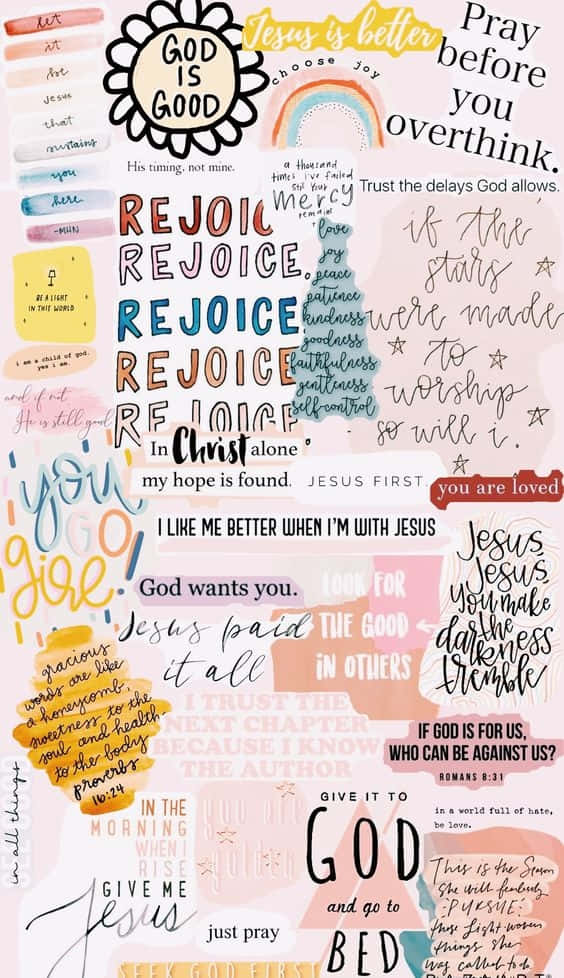 let
it
be
Jesus
that
sustains
you
here
-MHN
GOD
IS
GOOD
Jesus is better
choose joy
Pray
before
you
overthink.
His timing, not mine.
a thousand
times i've failed
still your
mercy
remains
Trust the delays God allows.
REJOIC
REJOICE.
REJOICE
REJOICE
REJOICE
love
joy
peace
patience
kindness
goodness
faithfulness
gentleness
self-control
if the
stars
were made
to
worship
so will i.
BE A LIGHT
IN THIS WORLD
i am a child of god.
yes i am.
and if not,
He is still good
In Christ alone
my hope is found.
JESUS FIRST.
you are loved
you
GO
girl.
I LIKE ME BETTER WHEN I'M WITH JESUS
God wants you.
LOOK FOR
THE GOOD
IN OTHERS
Jesus paid
it all
Jesus,
Jesus,
you make
the
darkness
tremble
gracious
words are like
a honeycomb,
sweetness to the
soul and health
to the body
proverbs
16:24
I TRUST THE
NEXT CHAPTER
BECAUSE I KNOW
THE AUTHOR
IF GOD IS FOR US,
WHO CAN BE AGAINST US?
ROMANS 8:31
in all things
IN THE
MORNING
WHEN I
RISE
GIVE ME
Jesus
you are
golden
just pray
SEEK GOD FIRST
GIVE IT TO
GOD
and go to
BED
in a world full of hate,
be love.
This is the Season
She will fearlessly
·PURSUE·
those Light woven
things She
was called to do.